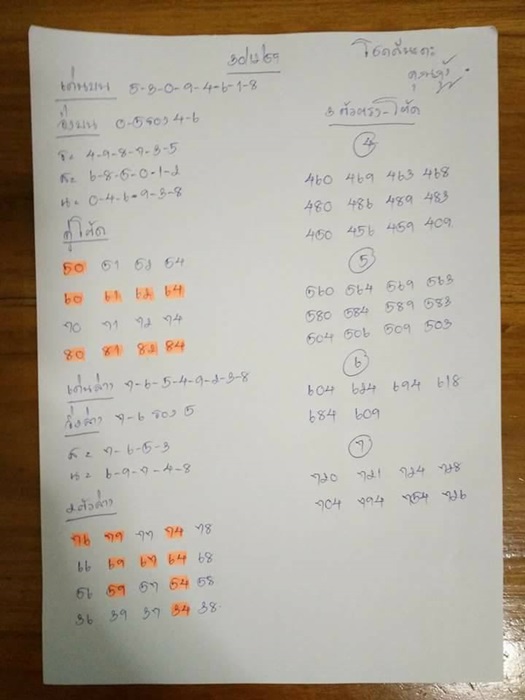 โชคดีนะคะ
เด่นบน 5-3-0-9-4-6-1-8
วิ่งบน 0-5 รอง 4-6
ร = 4-9-8-7-3-5
ส = 6-8-5-0-1-2
น = 0-4-6-9-3-8
คู่โต๊ด
50 51 52 54
60 61 62 64
70 71 72 74
80 81 82 84
เด่นล่าง 7-6-5-4-9-2-3-8
วิ่งล่าง 7-6 รอง 5
ส = 7-6-5-3
น = 6-9-7-4-8
2 ตัวล่าง
76 79 77 74 78
66 69 67 64 68
56 59 57 54 58
36 39 37 34 38
3 ตัวตรง-โต๊ด
4
460 469 463 468
480 486 489 483
450 456 459 409
5
560 564 569 563
580 584 589 583
504 506 509 503
6
604 624 694 618
684 609
7
720 721 724 728
704 794 754 726